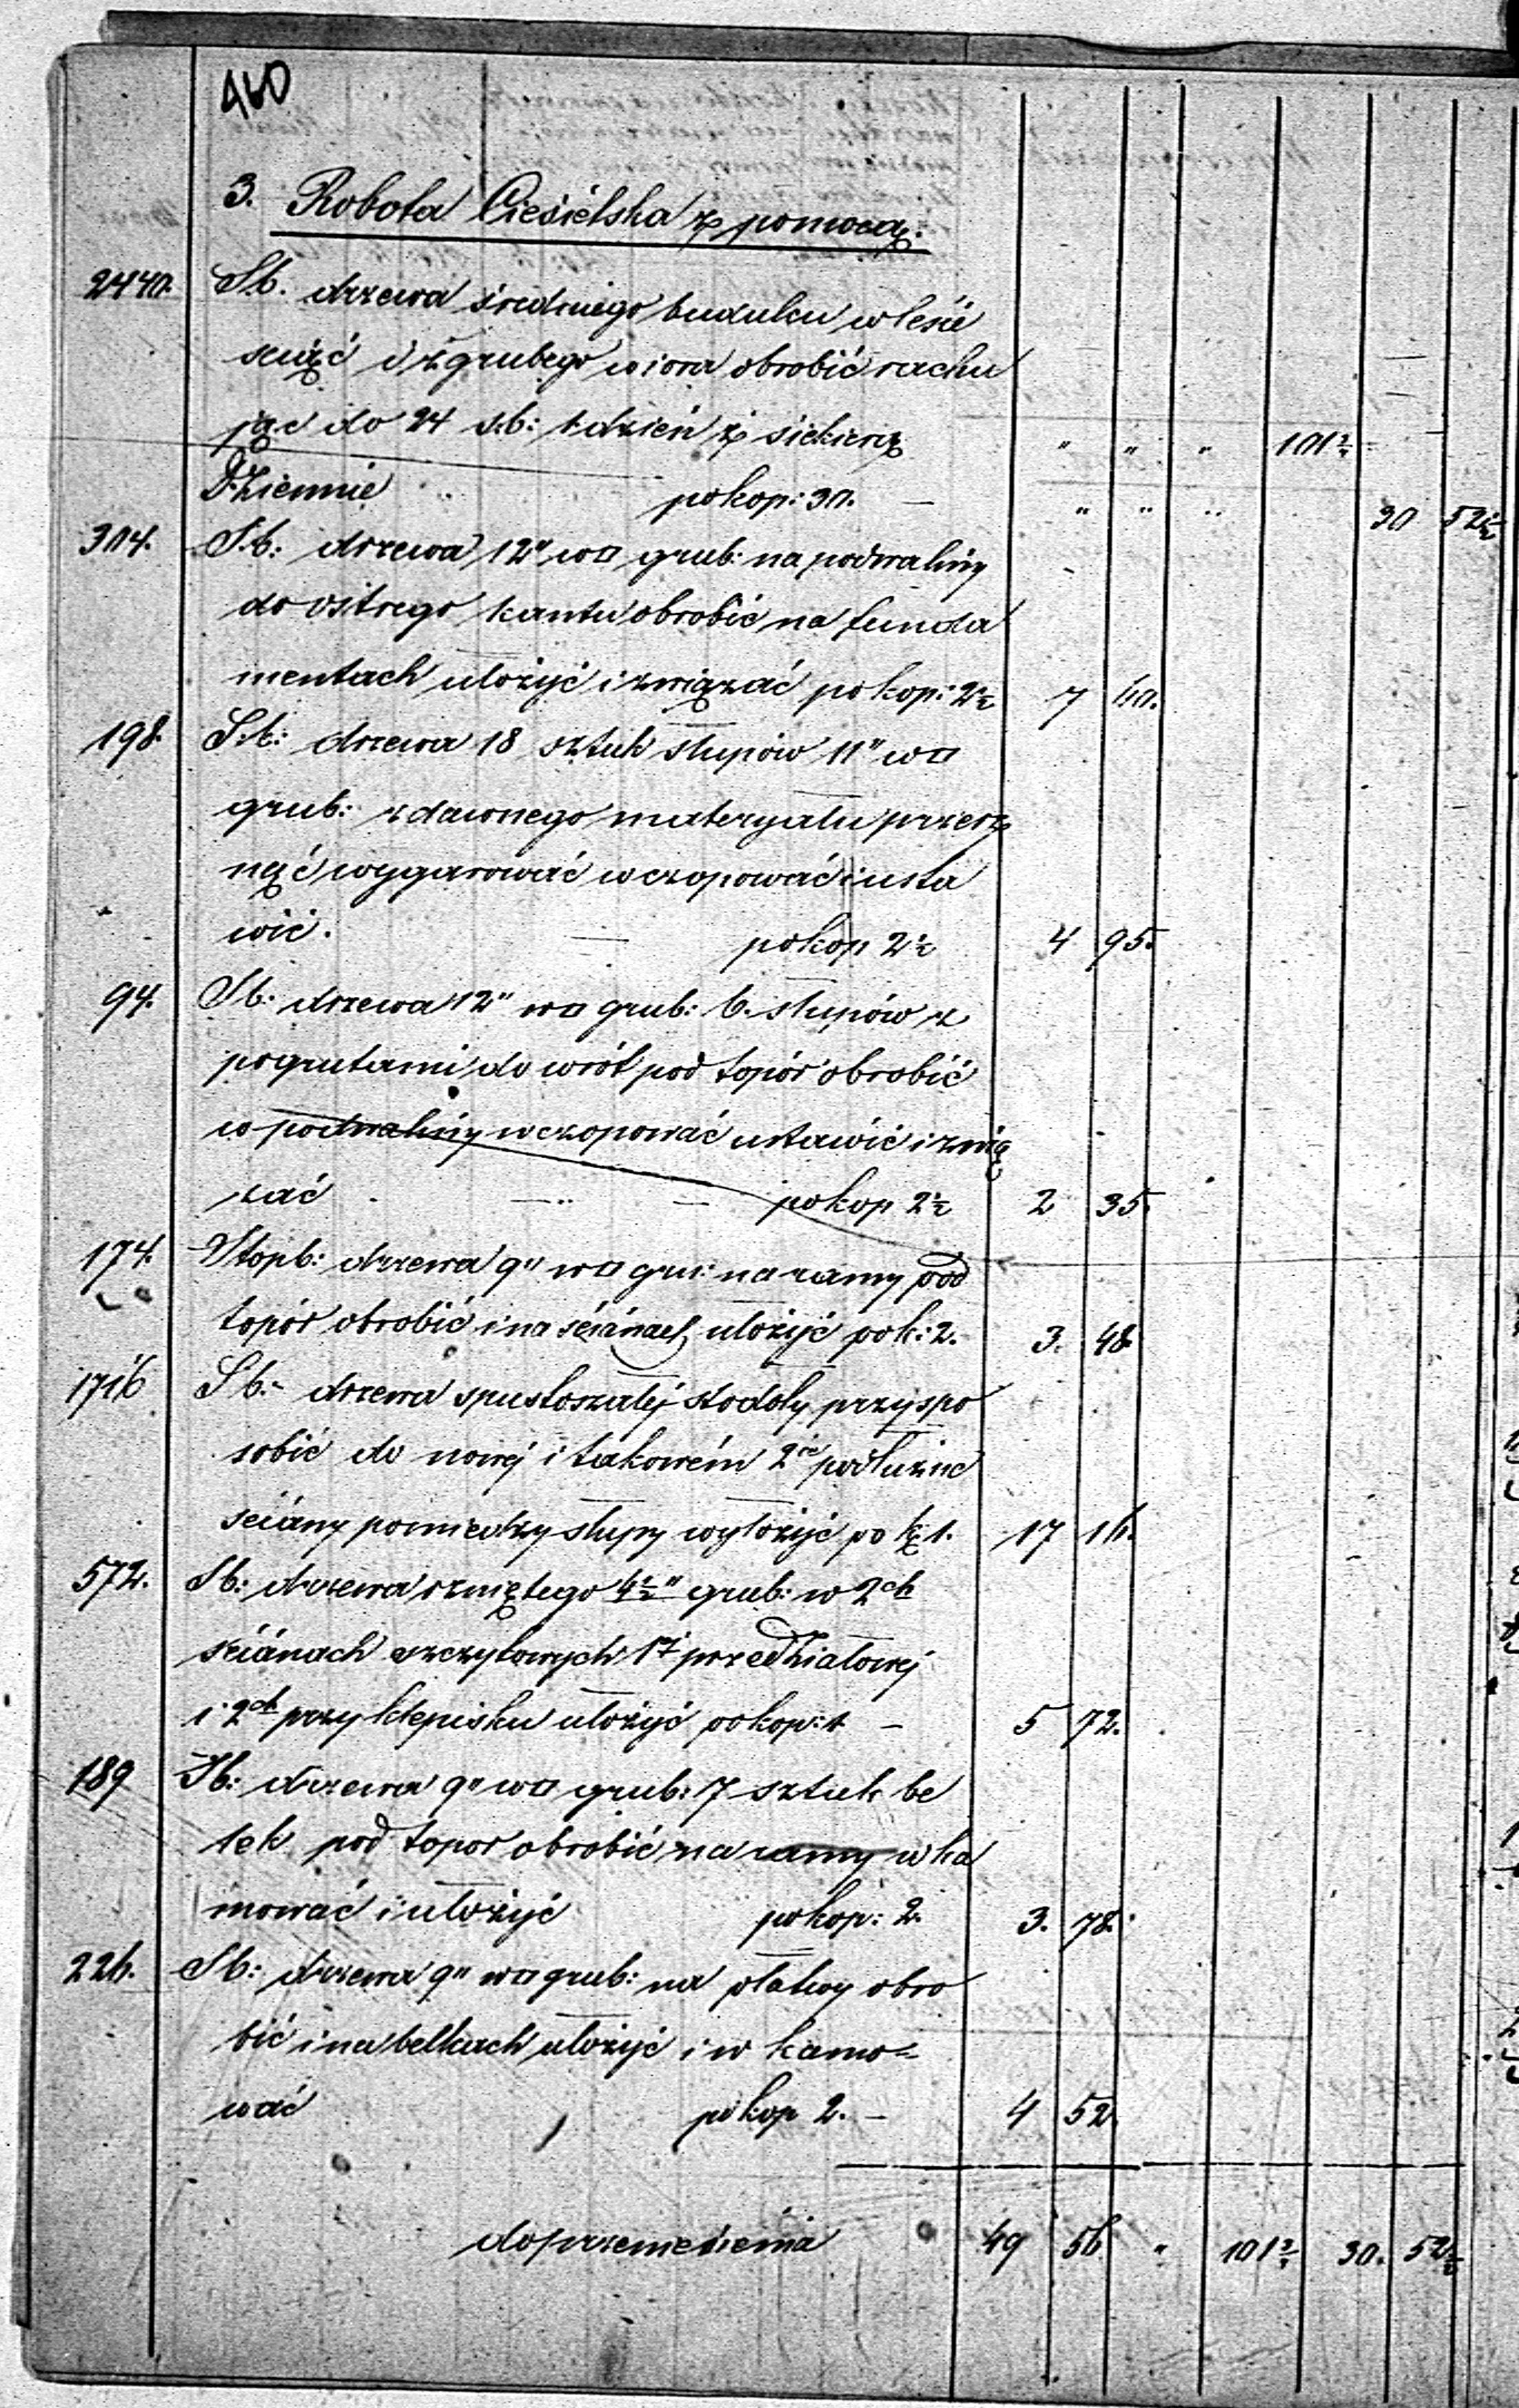 460
3. Robota Ciesielska z pomocą.
2440. St. b. drzewa średniego budulcu w lesie
sciąć i z grubego wiora obrobić rachu
jąc do 24 s.b: 1 dzień z siekierą " " " 101 2/3
Dziennie pokop: 30. — " " " 30 52 1/2
304. S.b: drzewa 12" w □ grub: na podwaliny
do ostrego kantu obrobić na funda
mentach ułożyć i związać po kop: 2 1/2 7 60.
198. S.b: drzewa 18 sztuk słupów 11" w □
grub: z dawnego materyału przerz
nąć wygarować wczopować i usta
wić. — pokop 2 1/2 4 95.
94. Sb: drzewa 12" w □ grub: 6. słupów z
pogrutami do wrót pod topór obrobić
w podwaliny wczopować ustawić i zwią
zać — — pokop 2 1/2 2 35.
174. Stopb: drzewa 9" w □ gru: na ramy pod
topór obrobić i na ścianach ułożyć pok: 2. 3. 48
1716 Sb:- drzewa spustoszałej stodoły przyspo
sobić do nowej i takowém 2ie podłużne
ściany pomiedzy słupy wyłożyć po k 1. 17 16.
572. Sb: drzewa rzniętego 4 1/2" grub: w 2ch
ścianach szczytowych 1ej przedziałowej
i 2ch przy klepisku ułożyć pokop: 1 — 5 72.
189 Sb: drzewa 9" w □ grub: 7 sztuk be
lek pod topor obrobić na ramy wka
mować i ułożyć pokop: 2. 3. 78.
226. Sb: drzewa 9" w □ grub: na płatwy obro
bić i na belkach ułożyć i w kamo=
wać pokop 2. — 4 52
do przeniesienia 49 56 " 101 2/3 30. 52 1/2